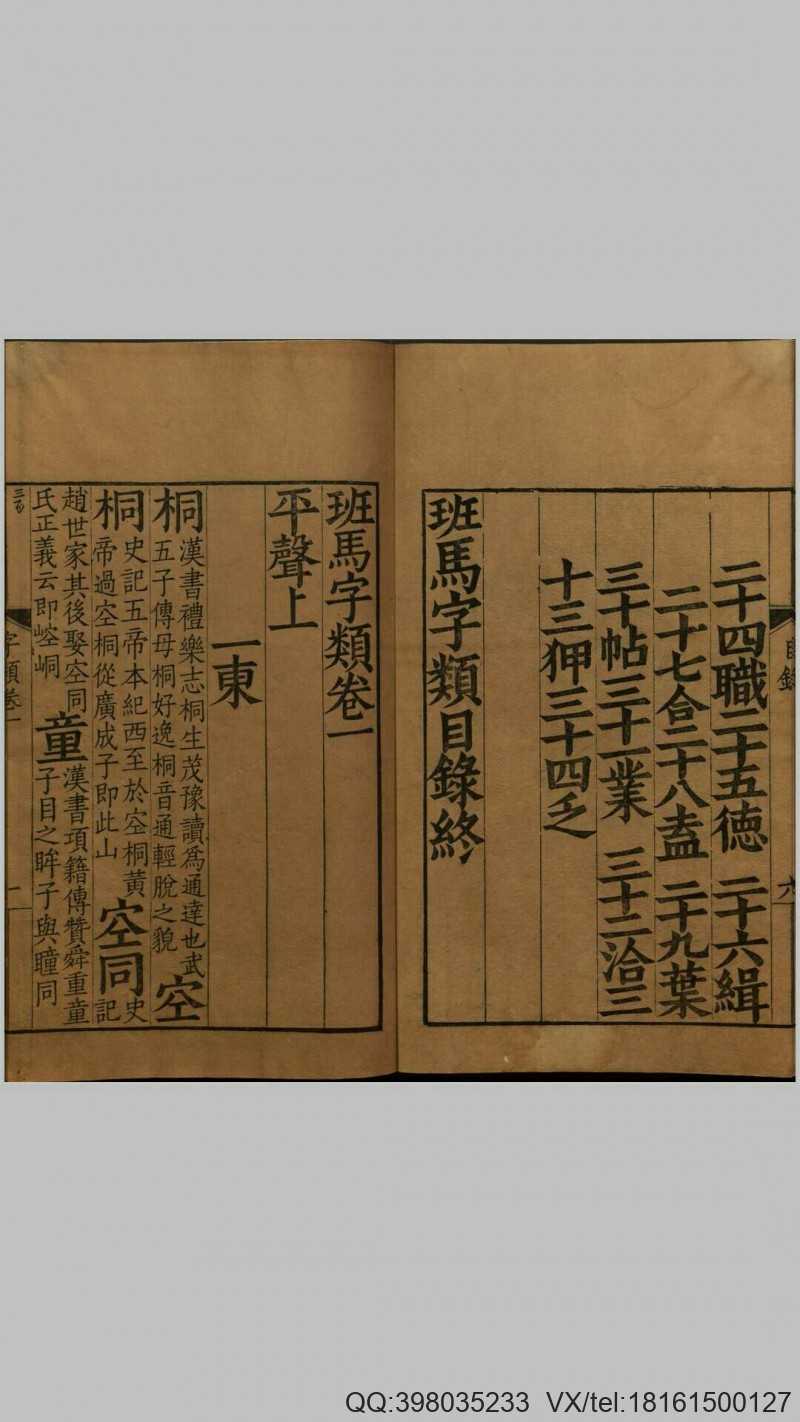 目錄
六
二十四職二十五德 二十六緝
二十七合二十八盍 二十九葉
三十帖三十一業 三十二洽三
十三狎三十四乏
班馬字類目錄終
班馬字類卷一
平聲上
一東
桐漢書禮樂志桐生茂豫讀爲通達也武
五子傳毋桐好逸桐音通輕脫之貌空
桐史記五帝本紀西至於空桐黃
帝過空桐從廣成子即此山空同史
記
趙世家其後娶空同
氏正義云即崆峒童漢書項籍傳贊舜重童
子目之眸子與瞳同
字類卷一
一
QQ:398035233 VX/tel:18161500127